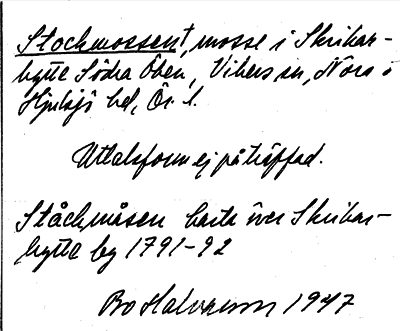 Stockmossen†, mosse i Skrikar-
hytte Södra Öben, Vikers sn, Nora o
Hjulsjö bd, Ör. l.
Uttalsform ej påträffad.
Ståckmåsen karta över Skrikar-
hytte by 1791-92
Bo Halvarsson 1947